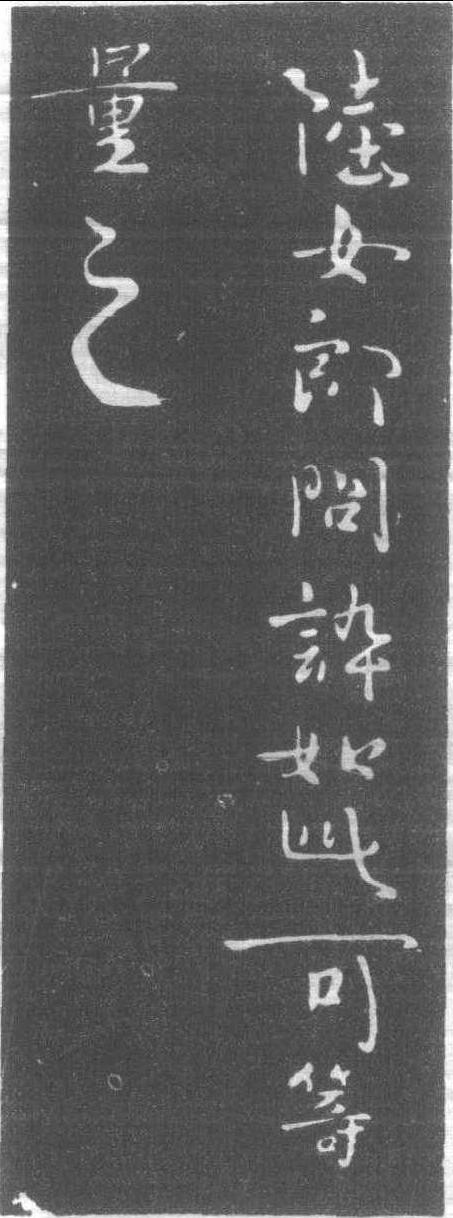 陸女郎問誶如此可等
量之